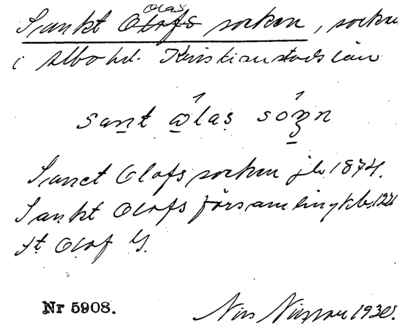 Sankt Olofs socken, socken
Olas
i Albo hd. Kristianstads län
sant ω̣las sózn
Sanct Olofs socken jb. 1874.
Sankt Olofs församling kb.
St Olof G.
Nr 5908. Nils Nilsson 1930.